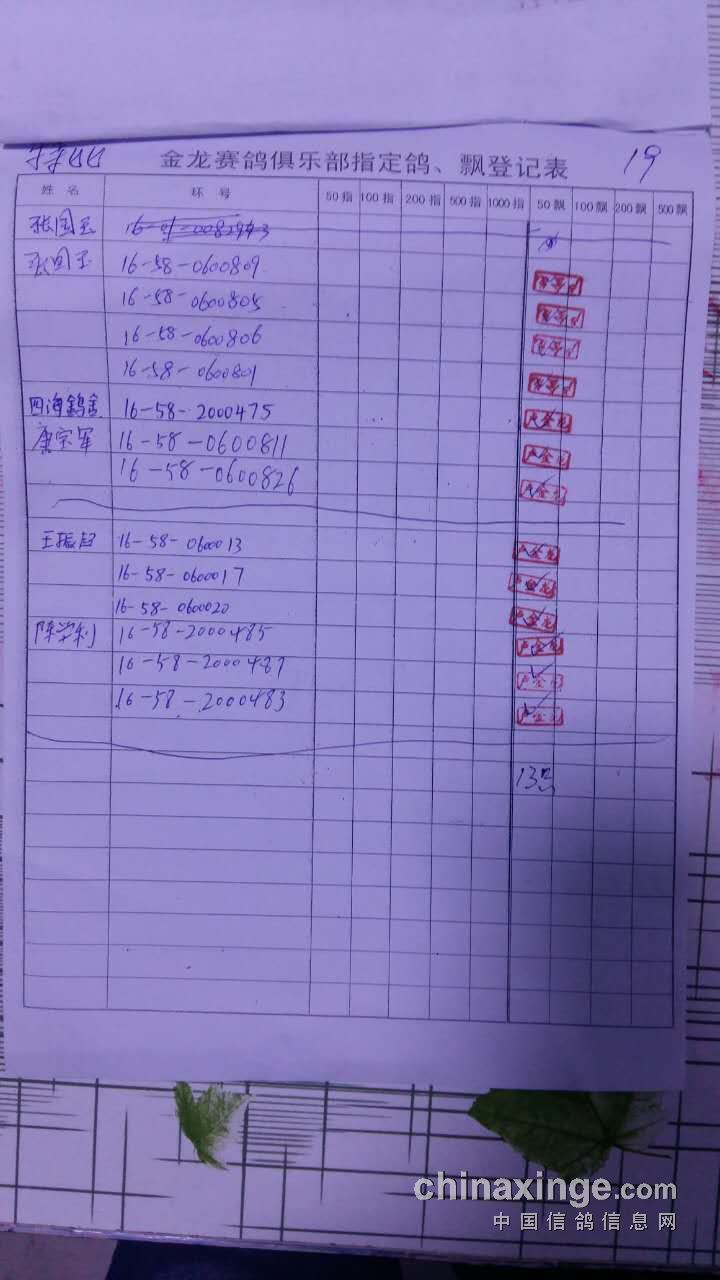 金龙赛鸽俱乐部指定鸽、飘登记表 19
姓名 环号 50指 100指 200指 500指 1000指 50飘 100飘 200飘 500飘
张国玉
张国玉 16-58-0600809
16-58-0600805
16-58-0600806
16-58-0600801
四海鸽舍 16-58-2000475
唐宗军 16-58-0600811
16-58-0600826
王振 16-58-0600013
16-58-0600017
16-58-0600020
陈学利 16-58-2000485
16-58-2000487
16-58-2000483
13只
chinaxinge.com
中国信鸽信息网